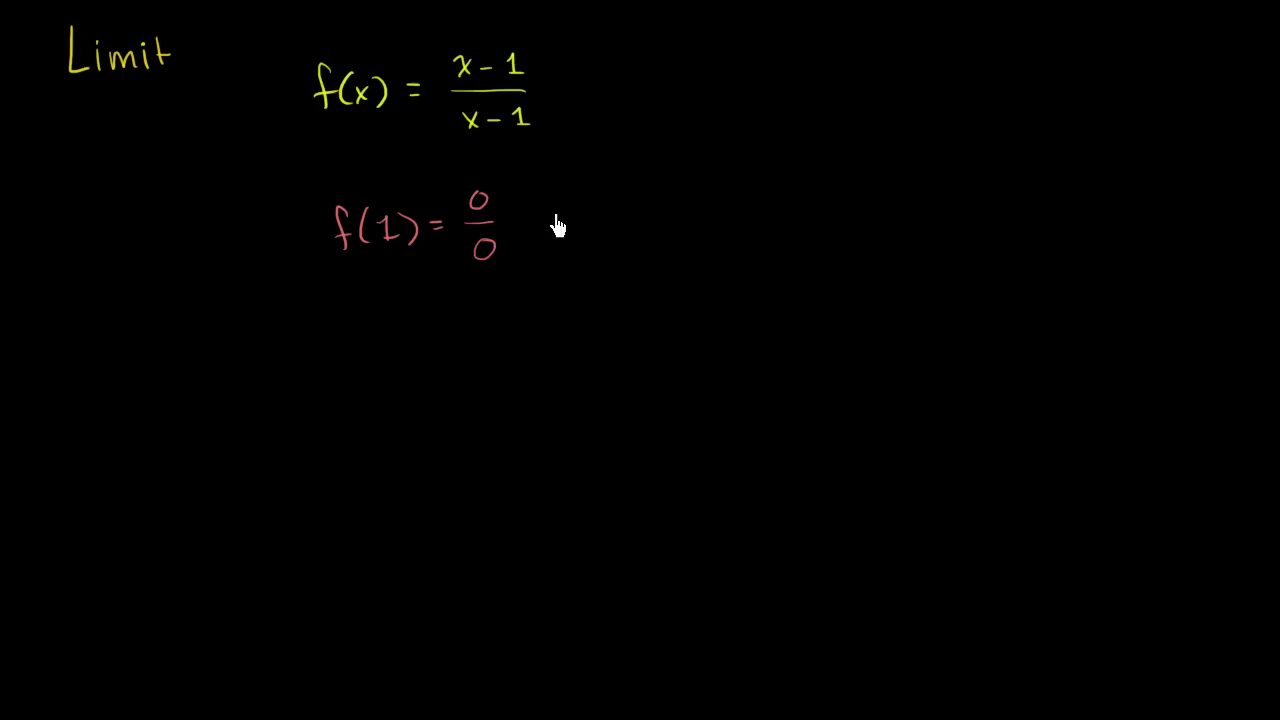 Limit
f(x) = x - 1 / x - 1
f(1) = 0 / 0